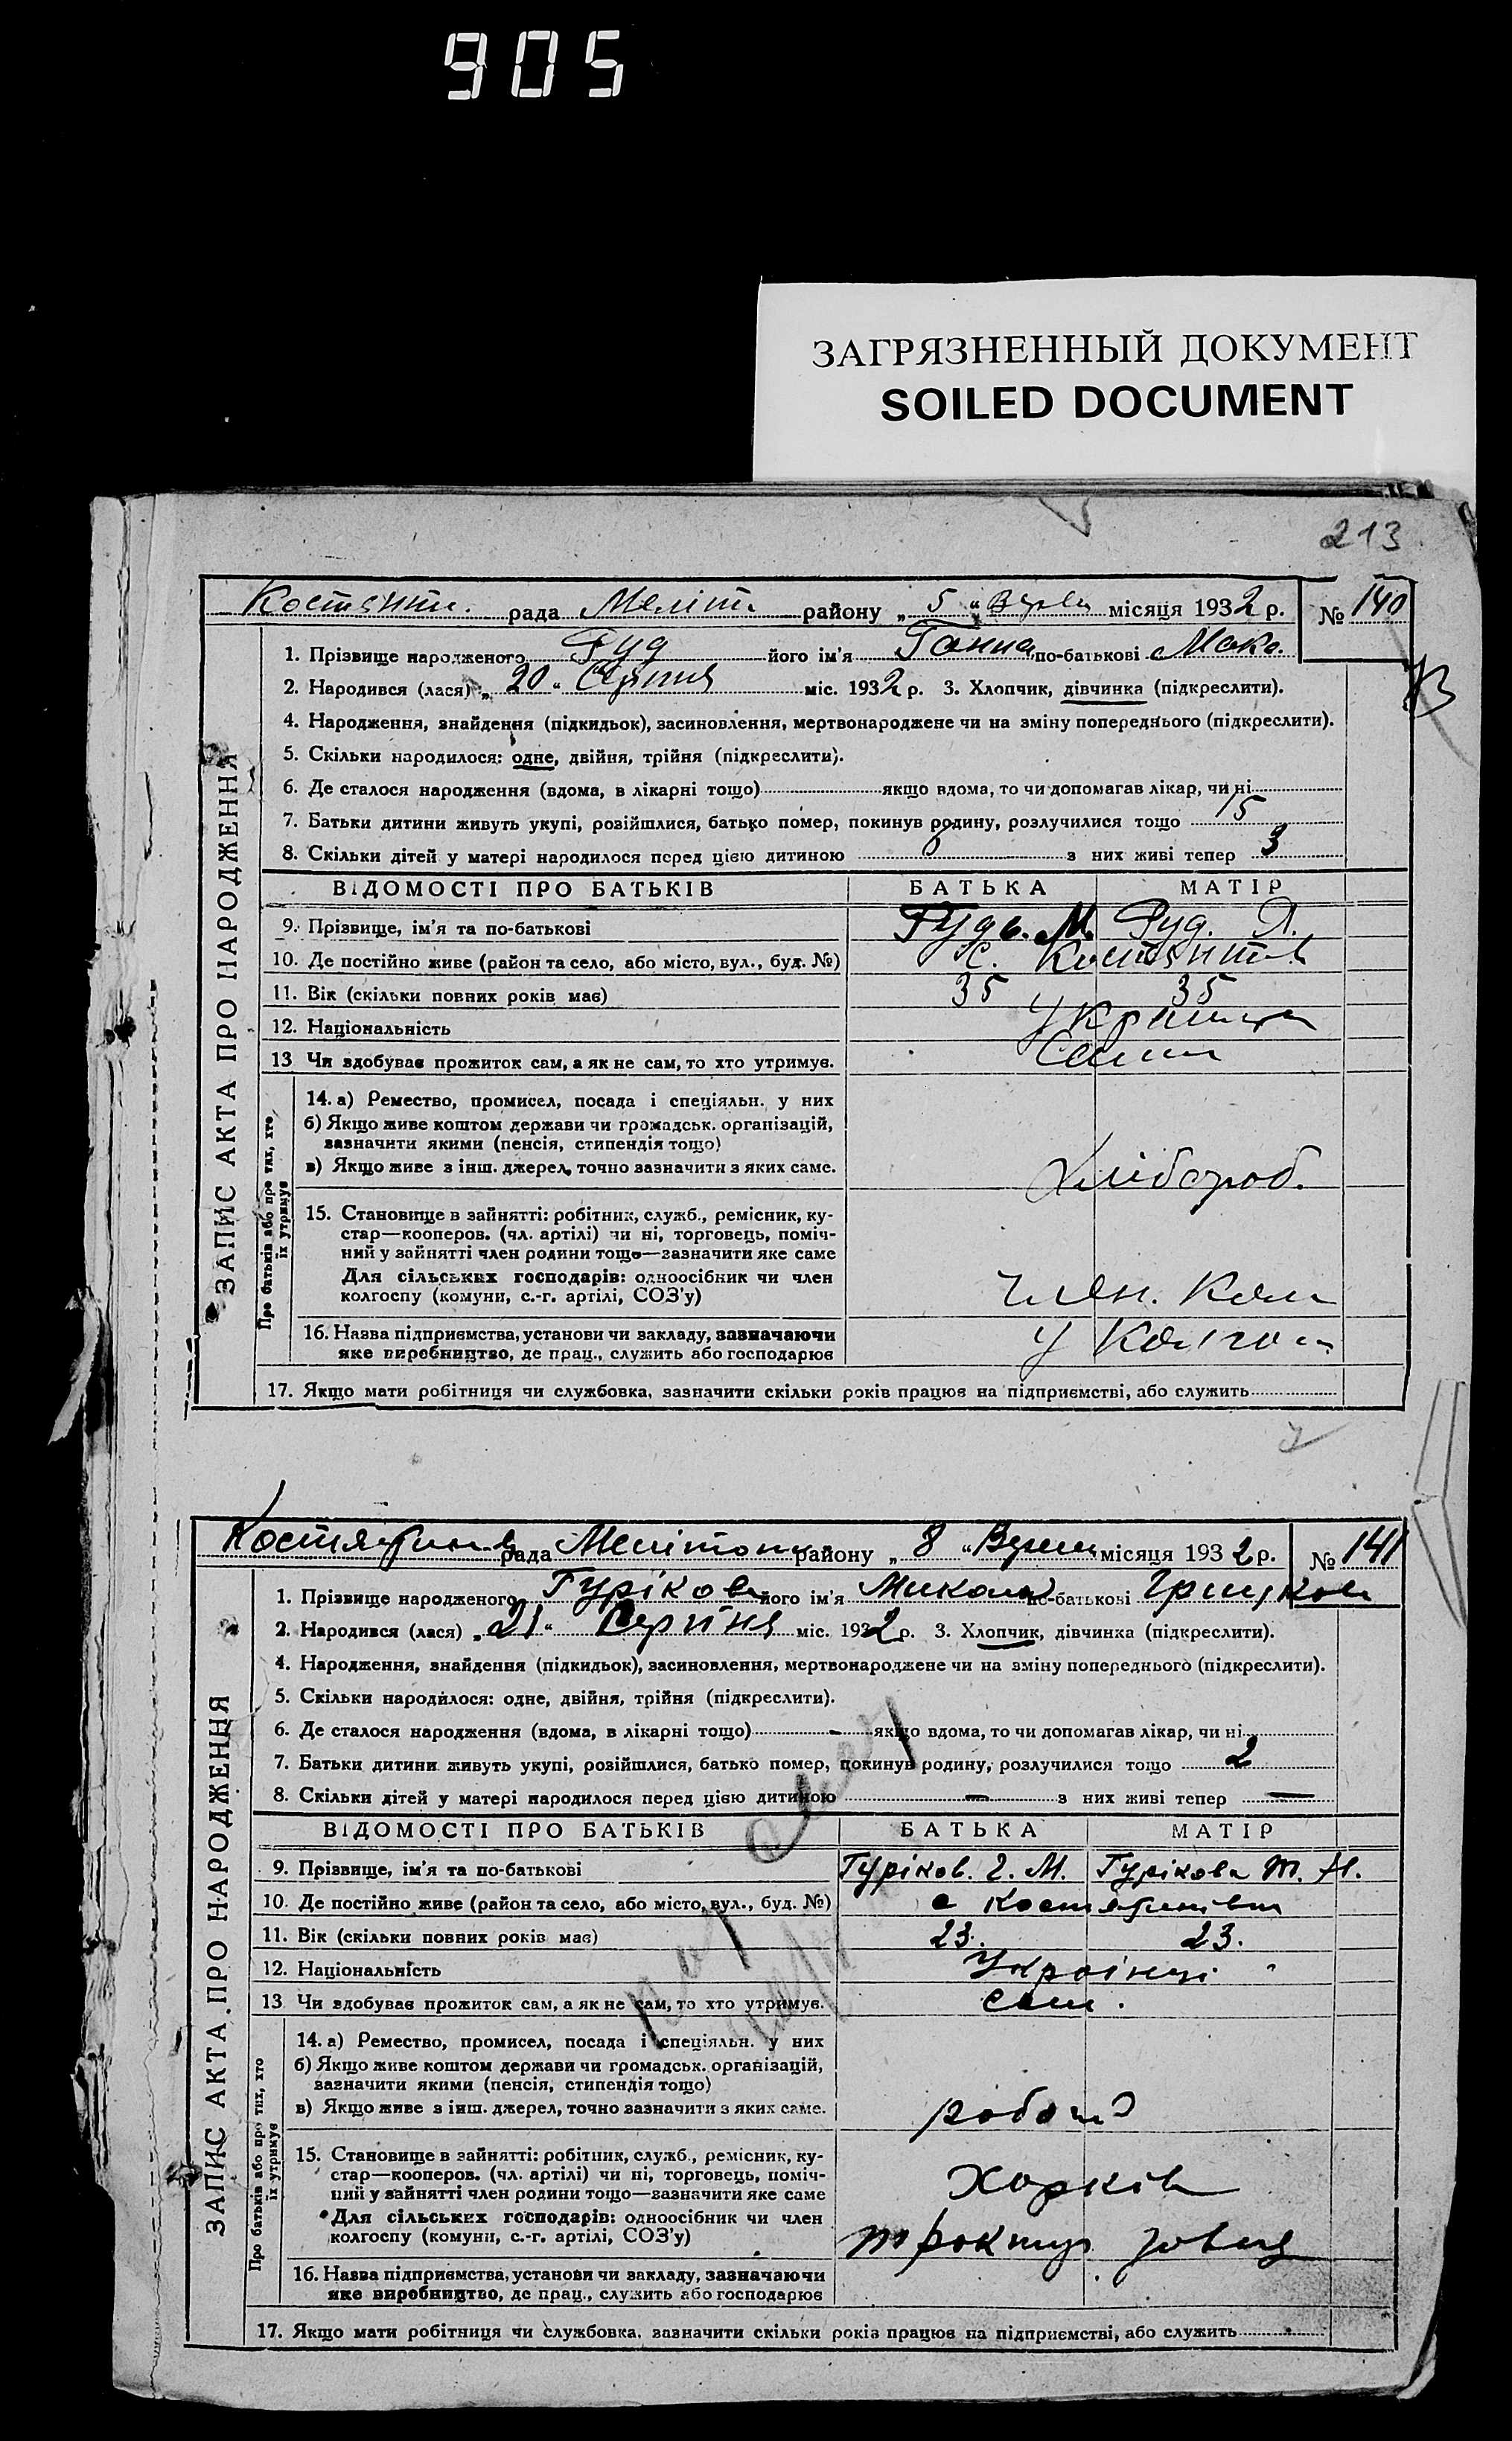 905
ЗАГРЯЗНЕННЫЙ ДОКУМЕНТ
SOILED DOCUMENT
213
рада Меліт. району „ 5 “ місяця 1932 р. № 140
ЗАПИС АКТА ПРО НАРОДЖЕННЯ
1. Прізвище народженого Гуд його ім'я Ганна по-батькові Мако.
2. Народився (лася) „ 20 “ Серпня міс. 1932 р. 3. Хлопчик, дівчинка (підкреслити).
4. Народження, знайдення (підкидьок), засиновлення, мертвонароджене чи на зміну попереднього (підкреслити).
5. Скільки народилося: одне, двійня, трійня (підкреслити).
6. Де сталося народження (вдома, в лікарні тощо) якщо вдома, то чи допомагав лікар, чи ні
7. Батьки дитини живуть укупі, розійшлися, батько помер, покинув родину, розлучилися тощо 15
8. Скільки дітей у матері народилося перед цією дитиною з них живі тепер 3
ВІДОМОСТІ ПРО БАТЬКІВ БАТЬКА МАТІР
9. Прізвище, ім'я та по-батькові Гудь. М. Гуд. Л.
10. Де постійно живе (район та село, або місто, вул., буд. №) С.
11. Вік (скільки повних років має) 35 35
12. Національність
13 Чи здобуває прожиток сам, а як не сам, то хто утримує.
Про батьків або про тих, хто їх утримує
14. а) Ремество, промисел, посада і спеціяльн. у них
б) Якщо живе коштом держави чи громадськ. організацій,
зазначити якими (пенсія, стипендія тощо)
в) Якщо живе з інш. джерел, точно зазначити з яких саме. Хлібороб.
15. Становище в зайнятті: робітник, служб., ремісник, ку-
стар—кооперов. (чл. артілі) чи ні, торговець, поміч-
ний у зайнятті член родини тощо—зазначити яке саме
Для сільських господарів: одноосібник чи член
колгоспу (комуни, с.-г. артілі, СОЗ'у) член. кол
16. Назва підприємства, установи чи закладу, зазначаючи
яке виробництво, де прац., служить або господарює у
17. Якщо мати робітниця чи службовка, зазначити скільки років працює на підприємстві, або служить
рада Мелітоп району „ 8 “ місяця 1932 р. № 141
ЗАПИС АКТА ПРО НАРОДЖЕННЯ
1. Прізвище народженого Гуріков його ім'я Микола по-батькові
2. Народився (лася) „ 21 “ Серпня міс. 1932 р. 3. Хлопчик, дівчинка (підкреслити).
4. Народження, знайдення (підкидьок), засиновлення, мертвонароджене чи на зміну попереднього (підкреслити).
5. Скільки народилося: одне, двійня, трійня (підкреслити).
6. Де сталося народження (вдома, в лікарні тощо) - якщо вдома, то чи допомагав лікар, чи ні
7. Батьки дитини живуть укупі, розійшлися, батько помер, покинув родину, розлучилися тощо 2
8. Скільки дітей у матері народилося перед цією дитиною — з них живі тепер —
ВІДОМОСТІ ПРО БАТЬКІВ БАТЬКА МАТІР
9. Прізвище, ім'я та по-батькові Гуріков. Г. М. Гурікова Т. Н.
10. Де постійно живе (район та село, або місто, вул., буд. №) с
11. Вік (скільки повних років має) 23. 23.
12. Національність Українці
13 Чи здобуває прожиток сам, а як не сам, то хто утримує. сам.
Про батьків або про тих, хто їх утримує
14. а) Ремество, промисел, посада і спеціяльн. у них
б) Якщо живе коштом держави чи громадськ. організацій,
зазначити якими (пенсія, стипендія тощо)
в) Якщо живе з інш. джерел, точно зазначити з яких саме.
15. Становище в зайнятті: робітник, служб., ремісник, ку-
стар—кооперов. (чл. артілі) чи ні, торговець, поміч-
ний у зайнятті член родини тощо—зазначити яке саме Харків
Для сільських господарів: одноосібник чи член
колгоспу (комуни, с.-г. артілі, СОЗ'у)
16. Назва підприємства, установи чи закладу, зазначаючи
яке виробництво, де прац., служить або господарює
17. Якщо мати робітниця чи службовка, зазначити скільки років працює на підприємстві, або служить